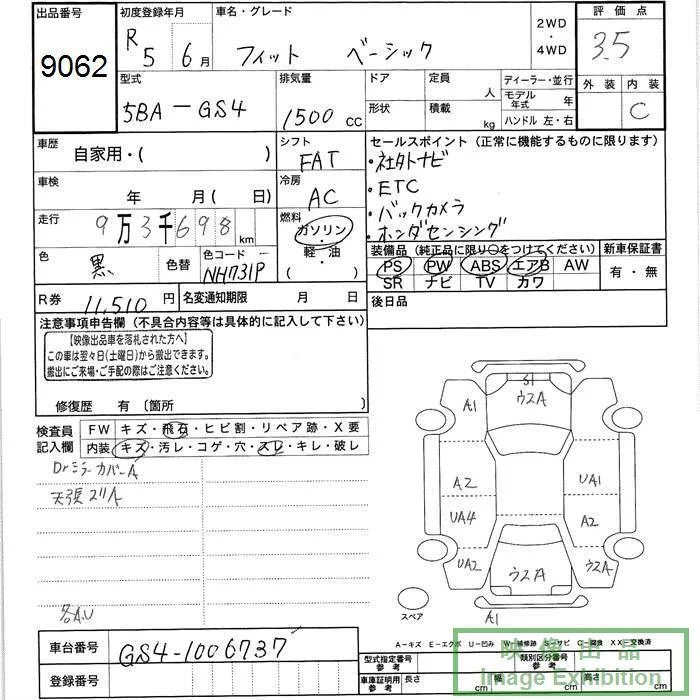 出品番号 初度登録年月 車名・グレード 2WD・4WD 評価点
9062 R5 6月 フィット ベーシック 3.5
型式 排気量 ドア 定員 人 ディーラー・並行 外装 内装
5BA-GS4 1500 CC 形状 積載 kg モデル年式 年 ハンドル 左・右 C
車歴 自家用・( ) シフト FAT セールスポイント (正常に機能するものに限ります)
・社外ナビ
車検 年 月 (日) 冷房 AC ・ETC
・バックカメラ
走行 9万3千698km 燃料 ガソリン・軽・油 ( ) ・ホンダセンシング
色 黒 色替 色コード NH731P 装備品 (純正品に限り○をつけてください) 新車保証書
PS PW ABS エアB AW 有・無
SR ナビ TV カワ
R券 11,510円 名変通知期限 月 日 後日品
注意事項申告欄 (不具合内容等は具体的に記入して下さい)
【映像出品車を落札された方へ】
この車は翌々日(土曜日)から搬出できます。
搬出にご来場・ご手配の際はご注意ください。
修復歴 有 〔箇所 〕
検査員記入欄 FW キズ・飛石・ヒビ割・リペア跡・X要
内装 キズ・汚レ・コゲ・穴・スレ・キレ・破レ
Drミラーカバー A
天張スリA
各A.U
S1
A1 ウスA
A2 UA1
UA4 A2
UA2 ウスA
スペア A1
A-キズ E-エクボ U-凹み W-補修跡 S-サビ C-腐食 XX-交換済
車台番号 GS4-1006737
登録番号
型式指定番号 参考 類別区分番号 参考
車庫証明用 参考 長さ cm 幅 cm cm
映像出品
Image Exhibition